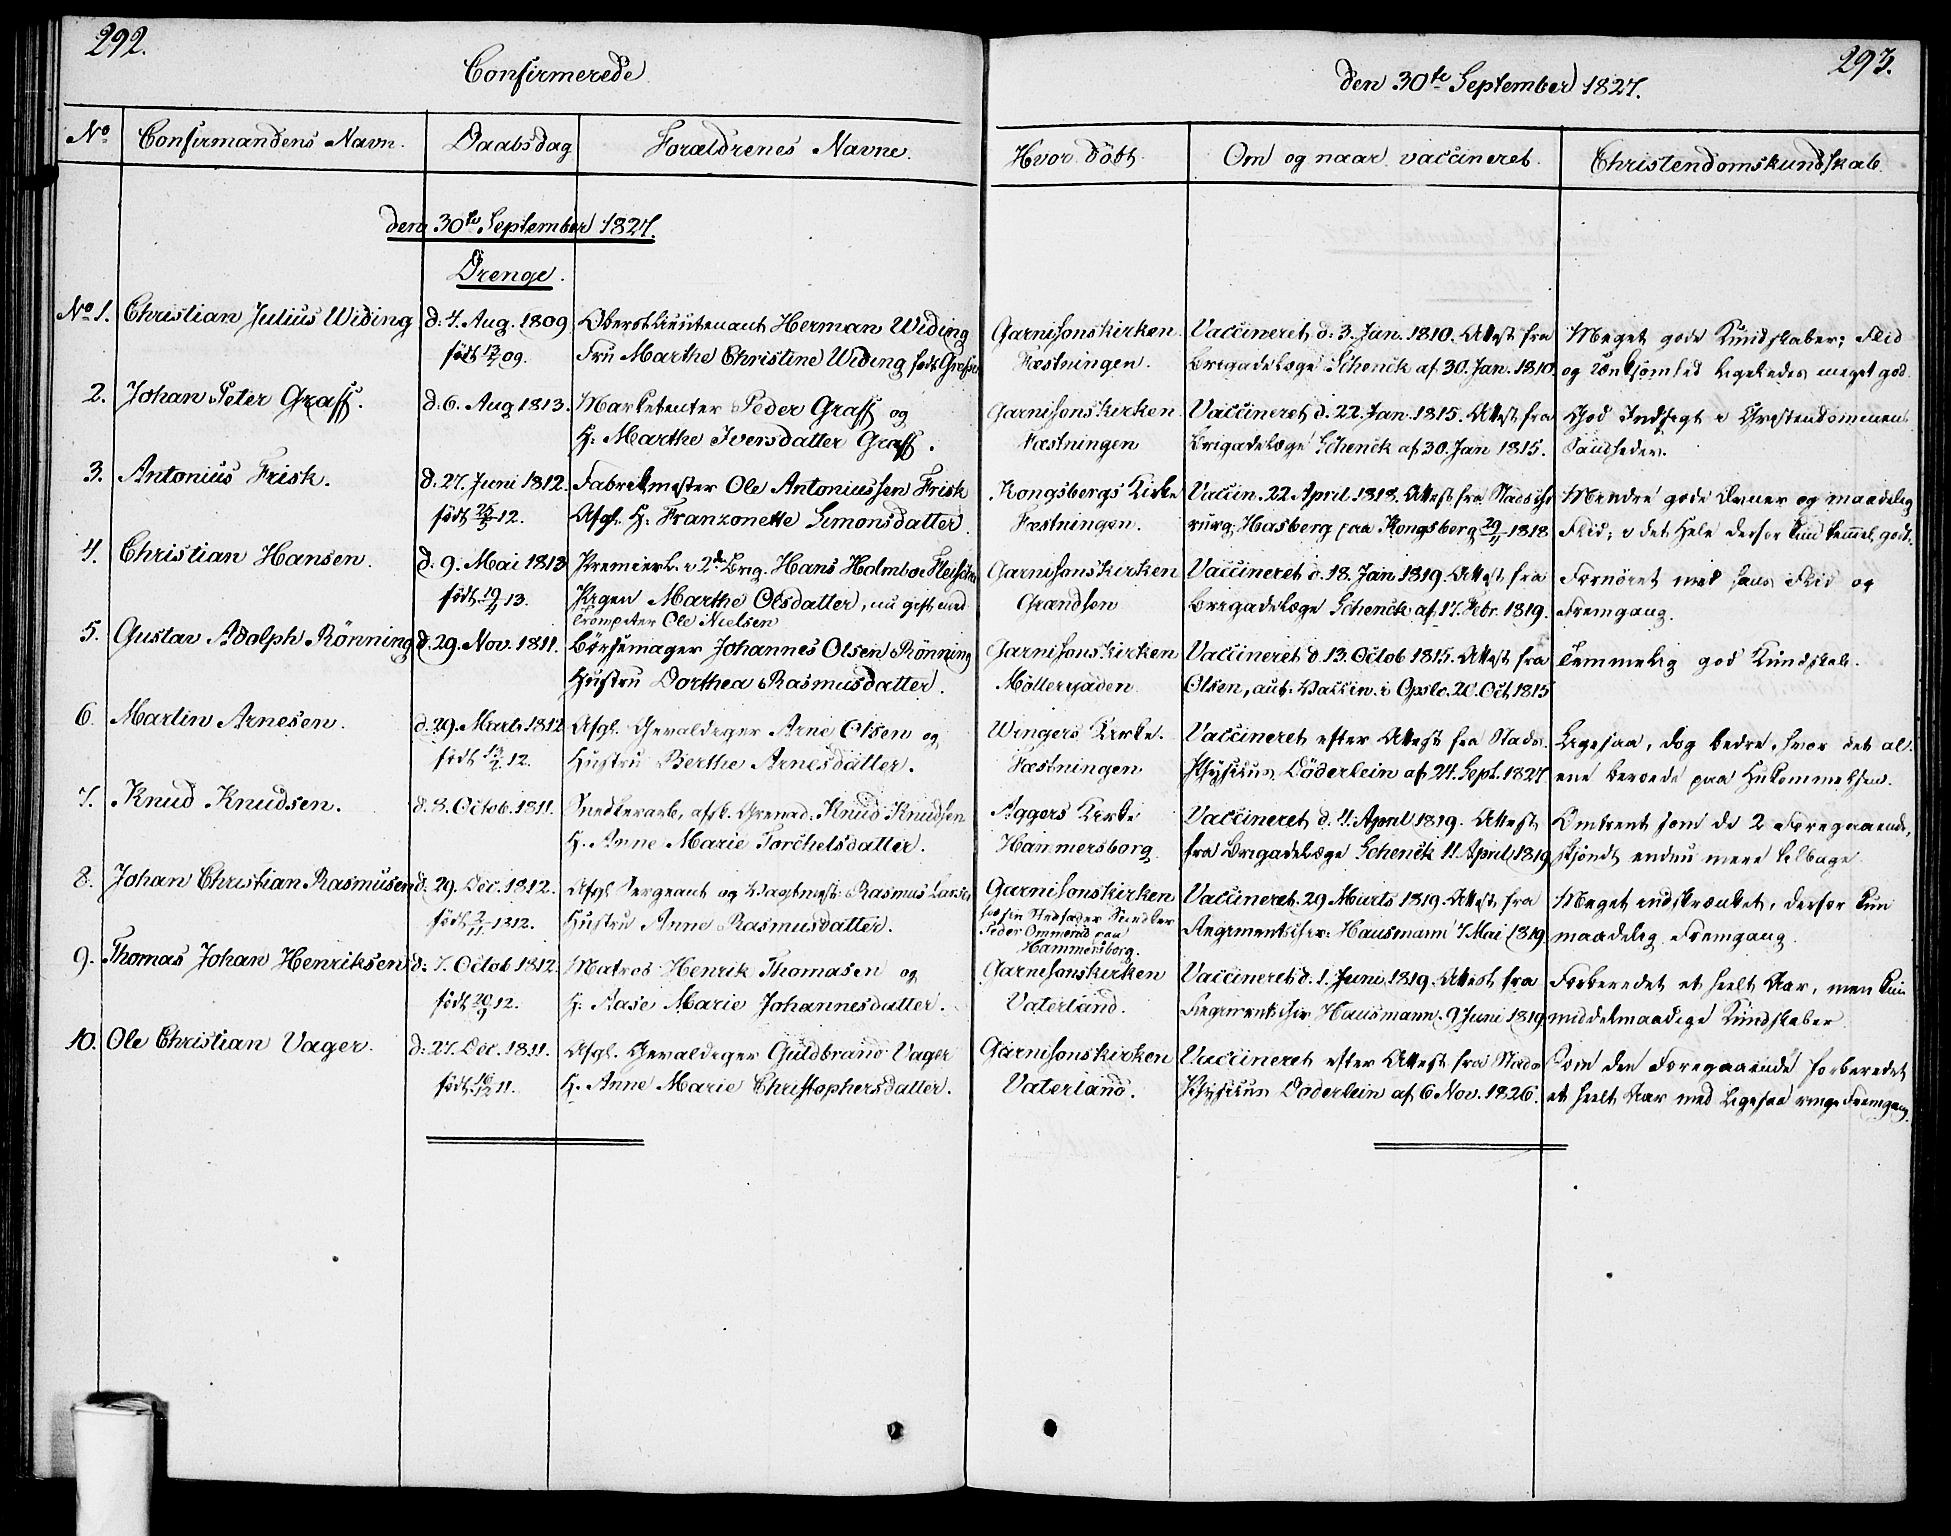 292.
Confirmerede
No Confirmandens Navn. Daabsdag Forældrenes Navne.
den 30te September 1827.
Drenge.
No 1. Christian Julius Widing d: 4. Aug. 1809 Oberstlieutenant Herman Widing
født 13/7 09. Fru Marthe Christine Widing født
2. Johan Peter Graff. d. 6. Aug 1813. Marketenter Peder Graff og
H: Marthe Iversdatter Graff.
3. Antonius Frisk. d: 27. Juni 1812. Fabrikmester Ole Antoniussen Frisk
født 12. Afgl. H: Franzonette Simonsdatter
4. Christian Hansen. d: 9. Mai 1813 Premierl. i 2de Brig. Hans Holmboe
født 13. Pigen Marthe Olsdatter, nu gift med
Trompeter Ole Nielsen
5. Gustav Adolph Rönning d. 29. Nov. 1811. Börsemager Johannes Olsen Rönning
Hustru Dorthea Rasmusdatter.
6. Martin Arnesen. d. 29. Marts 1812 Afgl. Gevaldiger Arne Olsen og
født 12. Hustru Berthe Arnesdatter.
7. Knud Knudsen. d. 8. Octob. 1811. Snedkerarb, afsk. Grenad. Knud Knudsen
H. Anne Marie Torchelsdatter.
8. Johan Christian Rasmusen d. 29. Dec. 1812. Afgl. Sergeant og Vagtmest. Rasmus Larsen
født 2/11 1812. Hustru Anne Rasmusdatter.
9. Thomas Johan Henriksen d: 7. Octob 1812. Matros Henrik Thomasen og
født 20/9 12. H: Aase Marie Johannesdatter.
10. Ole Christian Vager. d: 27. Dec. 1811. Afgl. Gevaldiger Guldbrand Vager
født 16/12 11. H. Anne Marie Christophersdatter.
293.
den 30te September 1827.
Hvor döbt. Om og naar vaccineret. Christendomskundskab.
Garnisonskirken Vaccineret d: 3. Jan. 1810. Attest fra Meget gode Kundskaber; Flid
Fæstningen. Brigadelæge Schenck af 30. Jan. 1810. og Sædelighed ligeledes meget god.
Garnisonskirken Vaccineret d. 22. Jan. 1815. Attest fra God Indsigt i Christendommens
Fæstningen Brigadelæge Schenck af 30. Jan 1815. Sandheder.
Kongsbergs Kirke Vaccin. 22 April 1818. Attest fra Stadschi- Mindre gode Evner og maadelig
Fæstningen. rurg Hasberg paa Kongsberg 29/11 1818 Flid; i det Hele derfor kun temmel. godt.
Garnisonskirken Vaccineret d. 18. Jan 1819. Attest fra Fornöiet med hans Flid og
Grændsen Brigadelæge Schenck af 17. Febr. 1819. Fremgang.
Garnisonskirken Vaccineret d. 13. Octob 1815. Attest fra Temmelig god Kundskab.
Möllergaden Olsen, aut. Vaccin. i Opslo. 20. Oct. 1815
Wingers Kirke. Vaccineret efter Attest fra Stads- Ligesaa, dog bedre, hvor det al-
Fæstningen Physikus Döderlein af 24. Sept. 1827 ene beroede paa Hukommelsen.
Aggers Kirke Vaccineret d. 4. April 1819. Attest Omtrent som de 2 Foregaaende,
Hammersborg. fra Brigadelæge Schenck 11. April 1819 skjöndt endnu mere tilbage.
Garnisonskirken Vaccineret 29 Marts 1819. Attest fra Meget indskrænket, derfor kun
hos sin Stedfader Snedker
Peder Ommund paa
Hammersborg. Regimentschir. Hausmann 7 Mai 1819 maadelig Fremgang.
Garnisonskirken Vaccineret d. 1. Juni 1819. Attest fra Forberedet et heelt Aar, men kun
Vaterland. Regimentschir Hausmann. 9 Juni 1819 middelmaadige Kundskaber
Garnisonskirken Vaccineret efter Attest fra Stads Som den Foregaaende forberedet
Vaterland. Physikus Döderlein af 6 Nov. 1826. et heelt Aar med ligesaa ringe Fremgang.